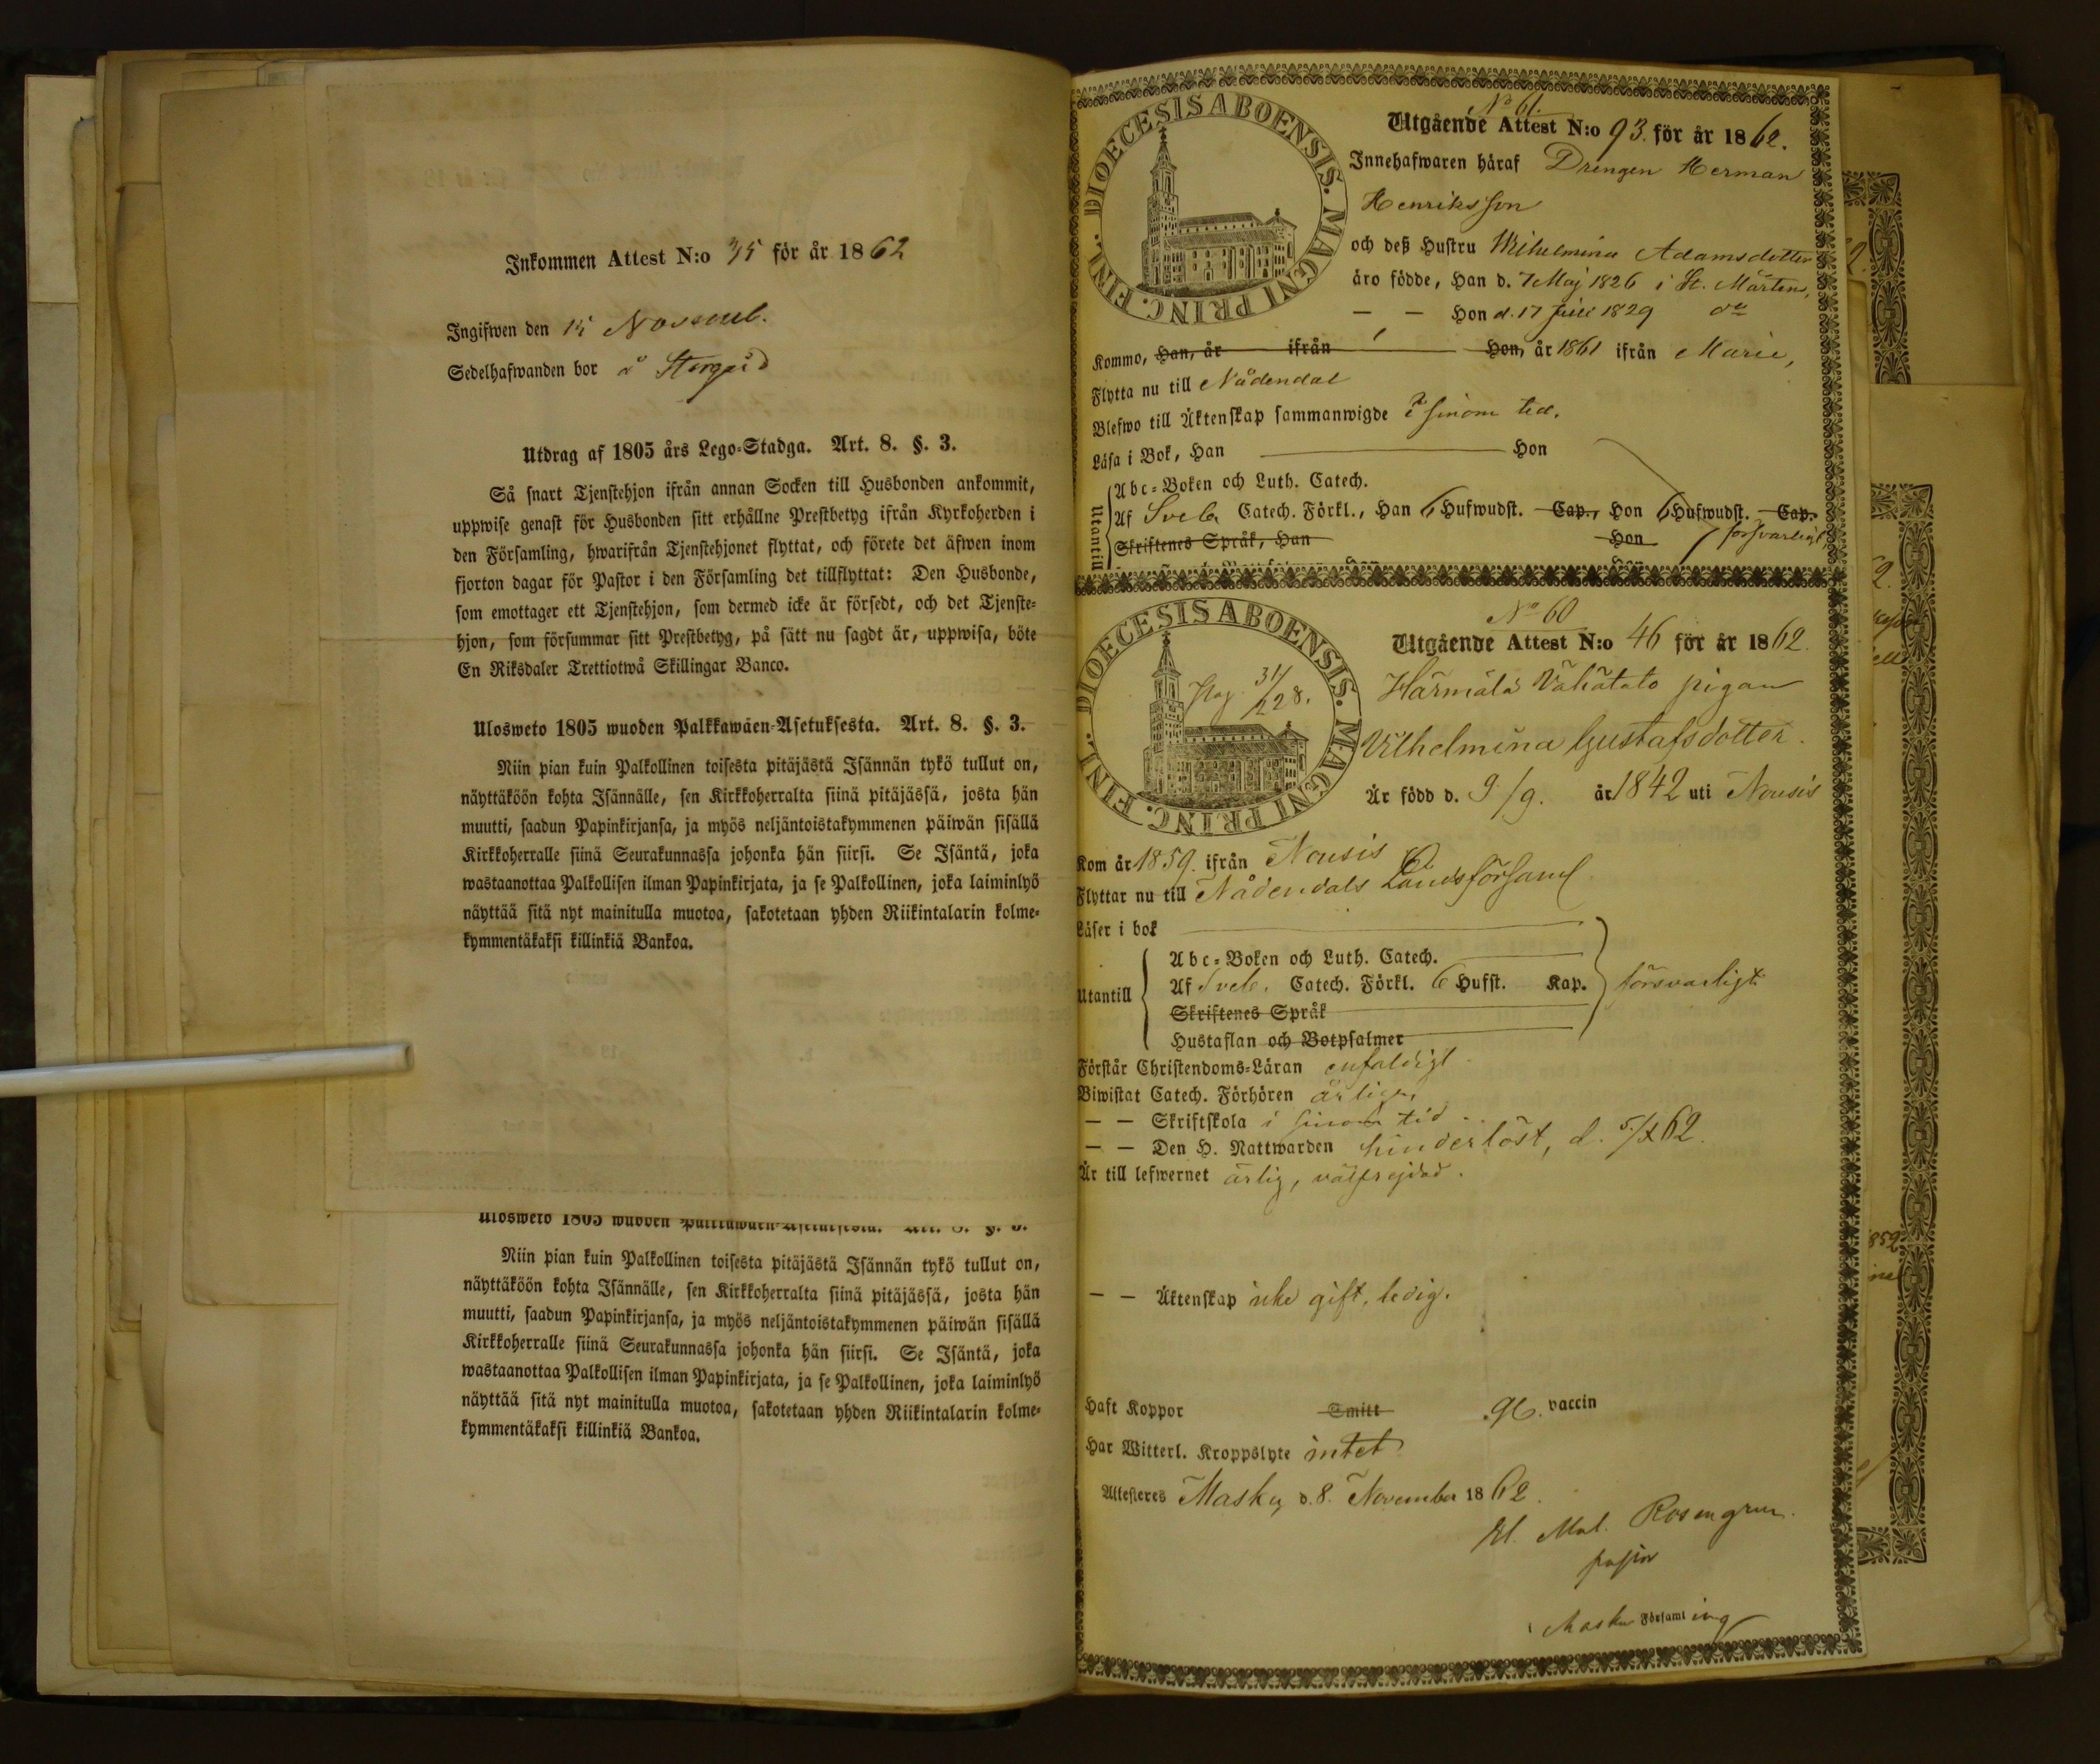 Inkommen Attest N:o 35 för år 1862
Ingifwen den 15 Novemb.
Sedelhafwanden bor å
Utdrag af 1805 års Lego-Stadga. Art. 8. §. 3.
Så snart Tjenstehjon ifrån annan Socken till Husbonden ankommit,
uppwise genast för Husbonden sitt erhållne Prestbetyg ifrån Kyrkoherden i
den Församling, hwarifrån Tjenstehjonet flyttat, och förete det äfwen inom
fjorton dagar för Pastor i den Församling det tillflyttat: Den Husbonde,
som emottager ett Tjenstehjon, som dermed icke är försedt, och det Tjenste-
hjon, som försummar sitt Prestbetyg, på sätt nu sagdt är, uppwisa, böte
En Riksdaler Trettiotwå Skillingar Banco.
Ulosweto 1805 wuoden Palkkawäen-Asetuksesta. Art. 8. §. 3.
Niin pian kuin Palkollinen toisesta pitäjästä Isännän tykö tullut on,
näyttäköön kohta Isännälle, sen Kirkkoherralta siinä pitäjässä, josta hän
muutti, saadun Papinkirjansa, ja myös neljäntoistakymmenen päiwän sisällä
Kirkkoherralle siinä Seurakunnassa johonka hän siirsi. Se Isäntä, joka
wastaanottaa Palkollisen ilman Papinkirjata, ja se Palkollinen, joka laiminlyö
näyttää sitä nyt mainitulla muotoa, sakotetaan yhden Riikintalarin kolme-
kymmentäkaksi killinkiä Bankoa.
Ulosweto 1805 wuoden Palkkawäen-Asetuksesta. Art. 8. §. 3.
Niin pian kuin Palkollinen toisesta pitäjästä Isännän tykö tullut on,
näyttäköön kohta Isännälle, sen Kirkkoherralta siinä pitäjässä, josta hän
muutti, saadun Papinkirjansa, ja myös neljäntoistakymmenen päiwän sisällä
Kirkkoherralle siinä Seurakunnassa johonka hän siirsi. Se Isäntä, joka
wastaanottaa Palkollisen ilman Papinkirjata, ja se Palkollinen, joka laiminlyö
näyttää sitä nyt mainitulla muotoa, sakotetaan yhden Riikintalarin kolme-
kymmentäkaksi killinkiä Bankoa.
DIOECESIS ABOENSIS. MAGNI PRINC. FINL.
No 61.
Utgående Attest N:o 93. för år 1862.
Innehafwaren häraf Drengen Herman
Henriksson
och deß Hustru Wilhelmina Adamsdotter
äro födde, Han d. 7 Maj 1826 i St. Mårtens,
— — Hon d. 17 Juli 1829 do
Kommo, Han, år ifrån Hon, år 1861 ifrån Marie,
Flytta nu till Nådendal
Blefwo till Äktenskap sammanwigde i sinom tid.
Läsa i Bok, Han Hon
Abc-Boken och Luth. Catech.
Utantill
Af Sveb. Catech. Förkl., Han 6 Hufwudst. Cap., Hon 6 Hufwudst. Cap.
Skriftenes Språk, Han Hon försvarligt
DIOECESIS ABOENSIS. MAGNI PRINC. FINL.
No 60
Utgående Attest N:o 46 för år 1862.
Pag. 31/128.
Härmälä Vähätalo pigan
Vilhelmina Gustafsdotter.
Är född d. 9/9. år 1842 uti Nousis
Kom år 1859. ifrån Nousis
Flyttar nu till Nådendals Landsförsaml.
Läser i bok
Abc-Boken och Luth. Catech.
Utantill Af Sveb. Catech. Förkl. 6 Hufst. Kap. försvarligt
Skriftenes Språk
Hustaflan och Botpsalmer
Förstår Christendoms-Läran enfaldigt
Biwistat Catech. Förhören årligen
— — Skriftskola i sinom tid
— — Den H. Nattwarden hinderlöst, d. 5/X 62.
Är till lefwernet ärlig, välfrejdad.
— — Äktenskap icke gift, ledig.
Haft Koppor Smitt vaccin
Har Witterl. Kroppslyte intet
Attesteres Masku d. 8. November 1862.
Rosengren.
pastor
Masku Församling